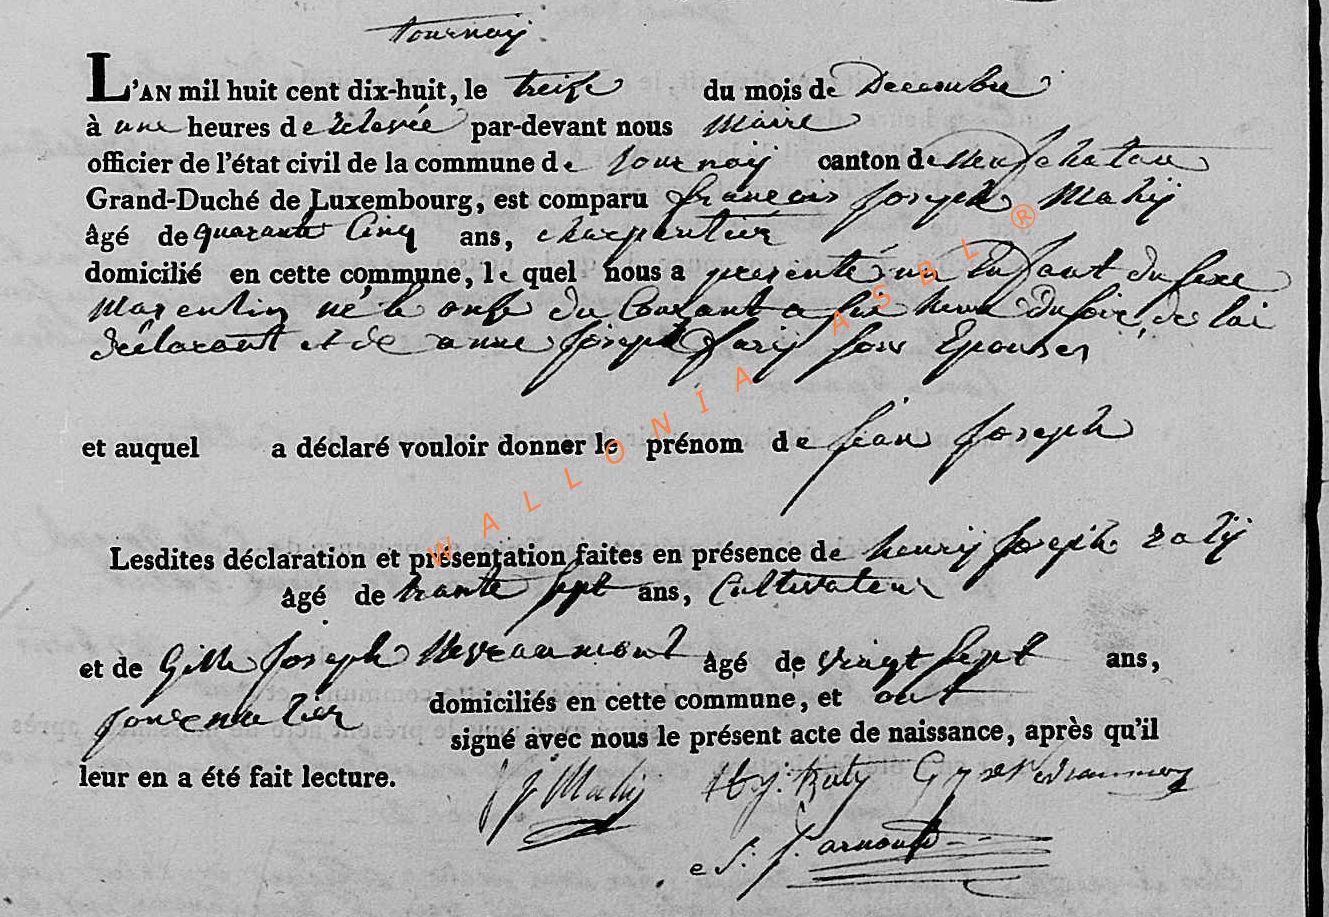 tournay.
L'AN mil huit cent dix-huit, le treize du mois de Decembre
à une heures de relevée par-devant nous Maire
officier de l'état civil de la commune de tournay canton de Neufchateau
Grand-Duché de Luxembourg, est comparu françois joseph Mahÿ
âgé de quarante Cinq ans, charpentier
domicilié en cette commune, le quel nous a presenté un Enfant du sexe
Masculin né le onse du Courant a six heure du soir, de lui
déclarant et de anne joseph Epouser
et auquel a déclaré vouloir donner le prénom de jean joseph
Lesdites déclaration et présentation faites en présence de henry joseph
âgé de trante sept ans, Cultivateur
et de Gille joseph âgé de vingt sept ans,
domiciliés en cette commune, et ont
signé avec nous le présent acte de naissance, après qu'il
leur en a été fait lecture.
Mahÿ
WALLONIA ASBL ®